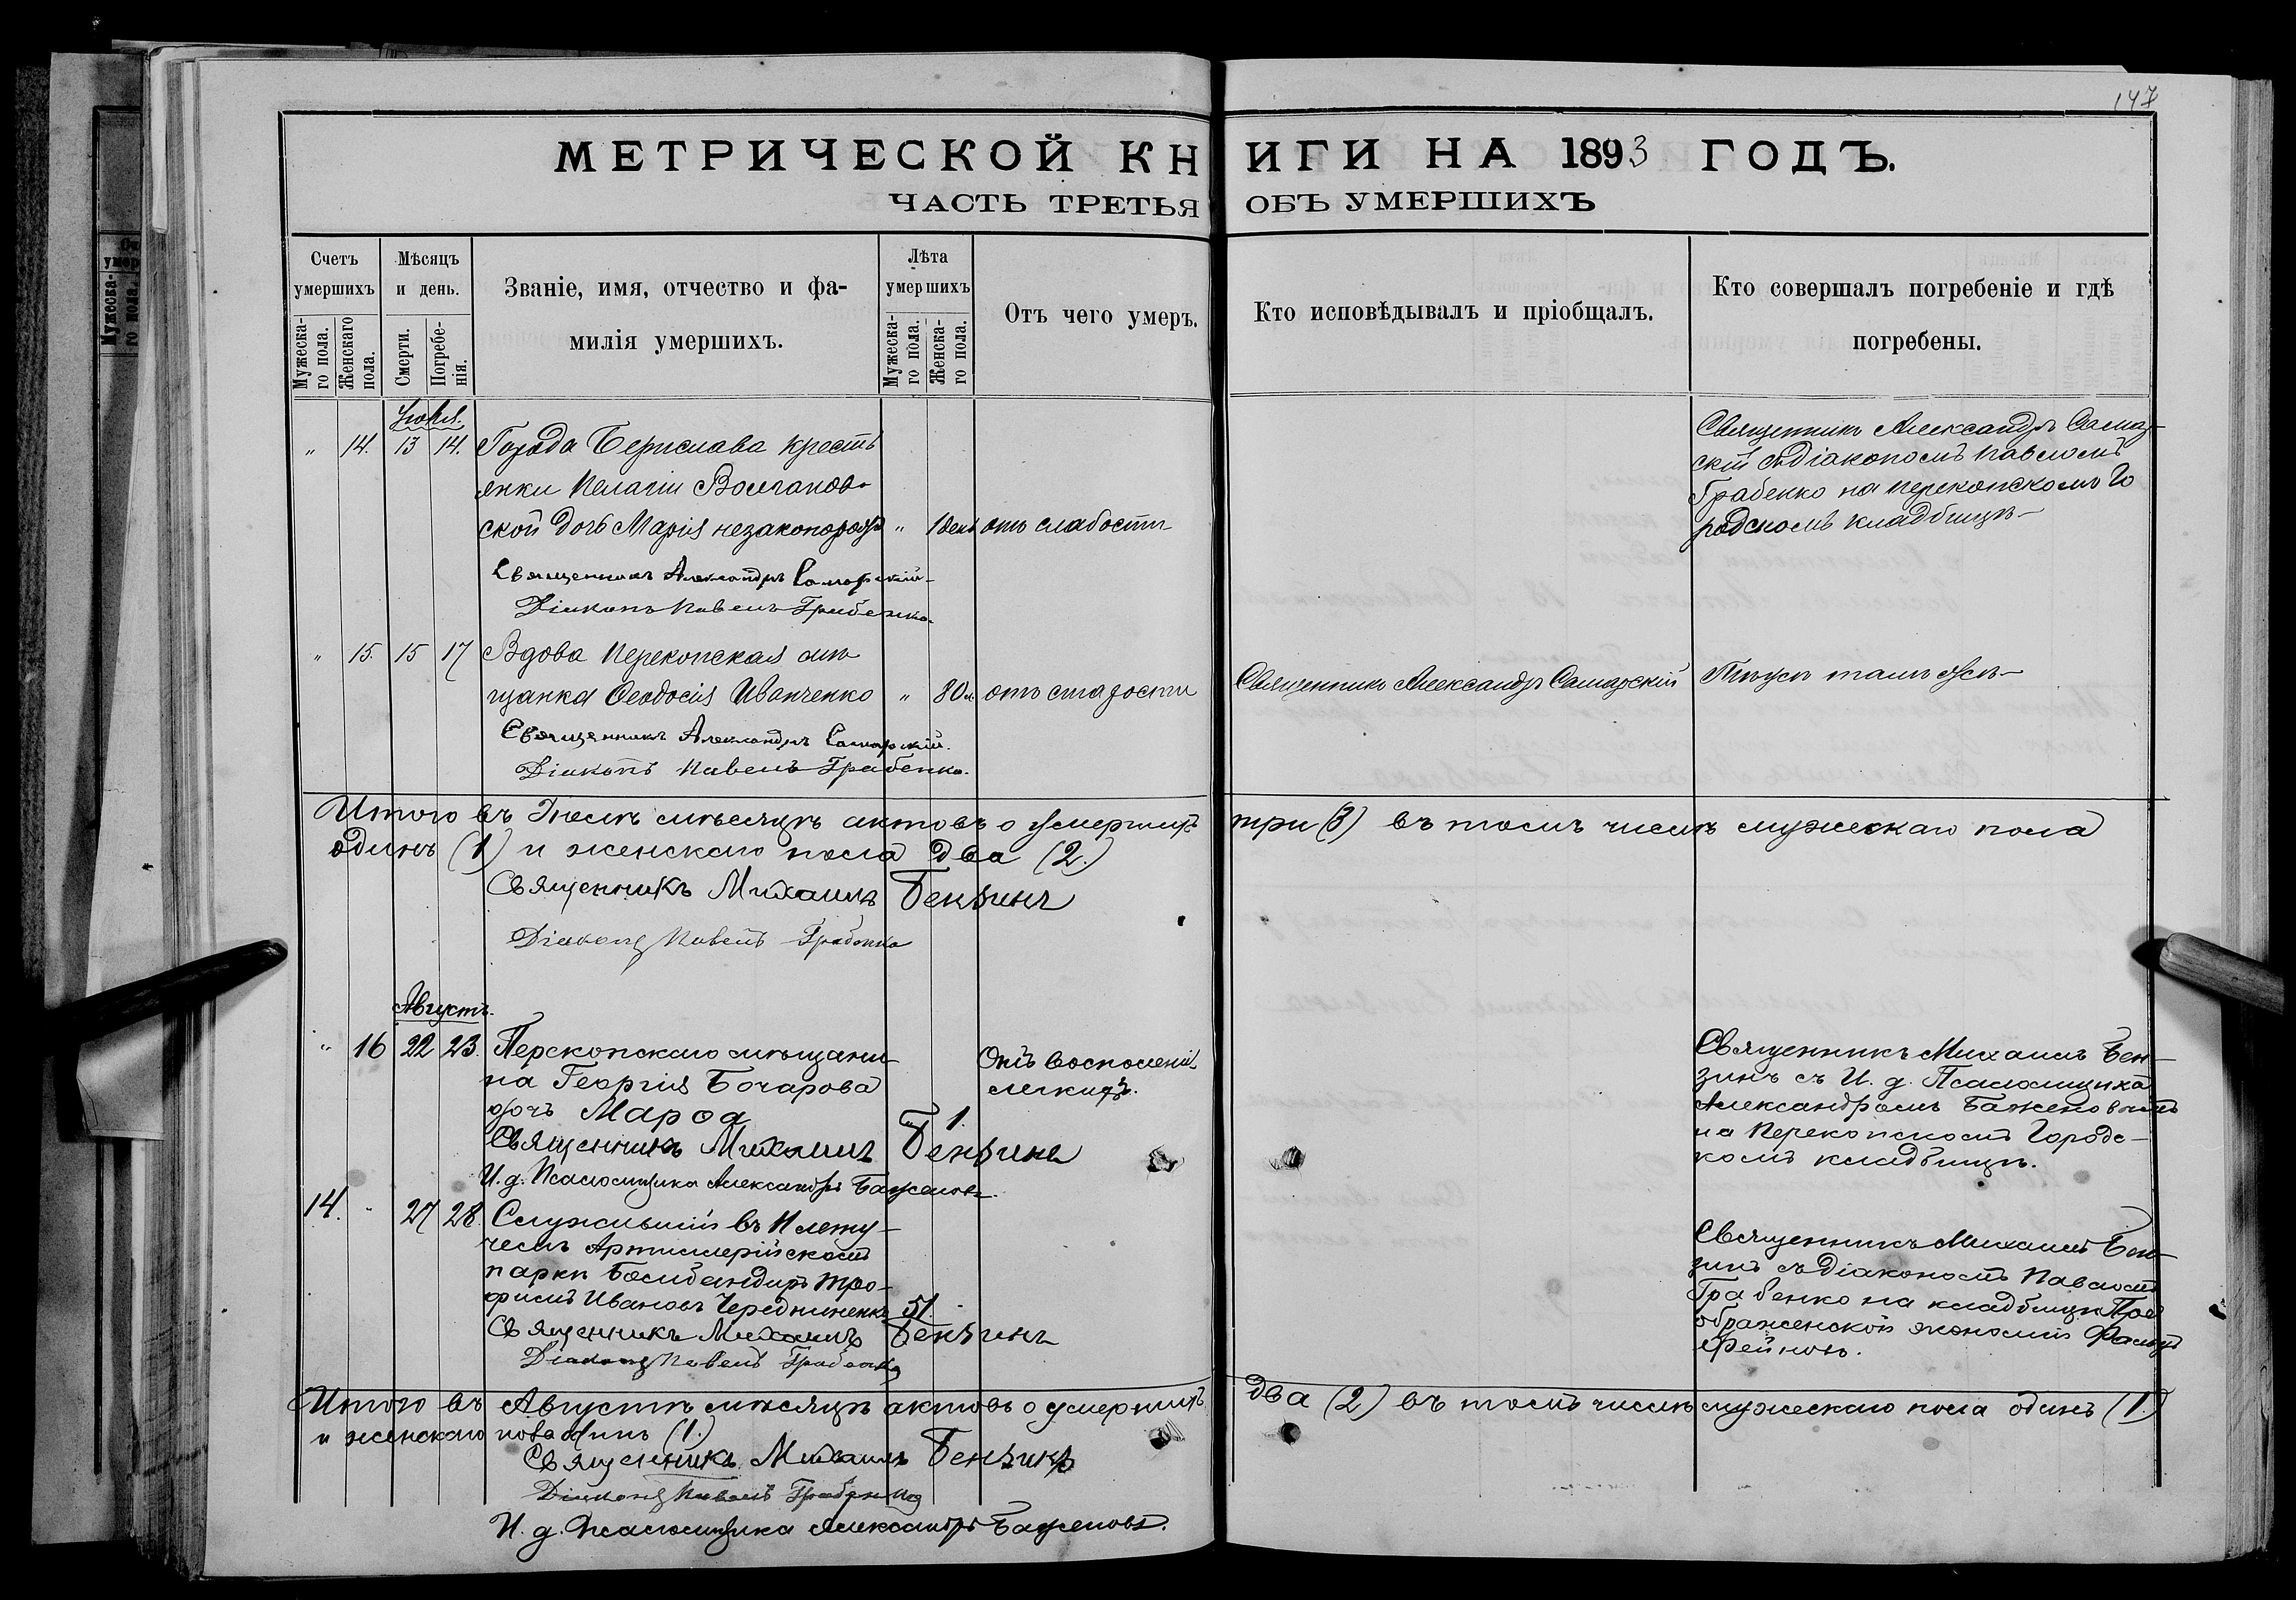 147
МЕТРИЧЕСКОЙ КНИГИ НА 1893 ГОДЪ.
ЧАСТЬ ТРЕТЬЯ ОБЪ УМЕРШИХЪ
Счетъ умершихъ
Мужеска-го пола.
Женскаго пола.
Мѣсяцъ и день.
Смерти.
Погребе-нія.
Званіе, имя, отчество и фа-
милія умершихъ.
Лѣта умершихъ
Мужеска-го пола.
Женска-го пола.
Отъ чего умеръ.
Кто исповѣдывалъ и пріобщалъ.
Кто совершалъ погребеніе и гдѣ
погребены.
Іюль.
" 14. 13 14. Города Берислава кресть
янки Пелагіи
ской дочь Марія незаконорожд " 1 день отъ слабости
Священникъ Александръ Самар-
скій съ діакономъ Павломъ
Грабенко на перекопскомъ Го
родскомъ кладбищѣ-
Священникъ Александръ Самарскій-
Діаконъ Павелъ Грабенко.
" 15. 15 17 Вдова Перекопская мѣ
щанка Ѳеодосія Иванченко " 80 л. отъ старости
Священникъ Александръ Самарскій
Тѣмъ же тамъ же-
Священникъ Александръ Самарскій.
Діаконъ Павелъ Грабенко.
Итого въ Іюлѣ мѣсяцѣ актовъ о умершихъ три (3) въ томъ числѣ мужескаго пола
одинъ (1) и женскаго пола два (2.)
Священникъ Михаилъ Бензинъ
Діаконъ Павелъ Грабенко
Августъ.
" 16 22 23. Перекопскаго мѣщани-
на Георгія Бочарова
дочь Мароа 1.
Отъ восполенія
легкихъ.
Священникъ Михаилъ Бен-
зинъ съ И. д. Псаломщика
Александромъ Баженовымъ
на Перекопскомъ Городс-
комъ кладбищѣ.
Священникъ Михаилъ Бензинъ
И. д. Псаломщика Александръ Баженовъ
14. " 27 28. Служившій въ
Артиллерійскомъ
паркѣ Бомбандиръ Тро-
фимъ Ивановъ Чередниненко 51.
Священникъ Михаилъ Бен-
зинъ съ діакономъ Павломъ
Грабенко на кладбищѣ Прео
браженской экономіи Фальц
Фейновъ.
Священникъ Михаилъ Бензинъ
Діаконъ Павелъ Грабенко
Итого въ Августѣ мѣсяцѣ актовъ о умершихъ два (2) въ томъ числѣ мужескаго пола одинъ (1.)
и женскаго пола одинъ (1.)
Священникъ Михаилъ Бензинъ
Діаконъ Павелъ Грабенко
И. д. Псаломщика Александръ Баженовъ.